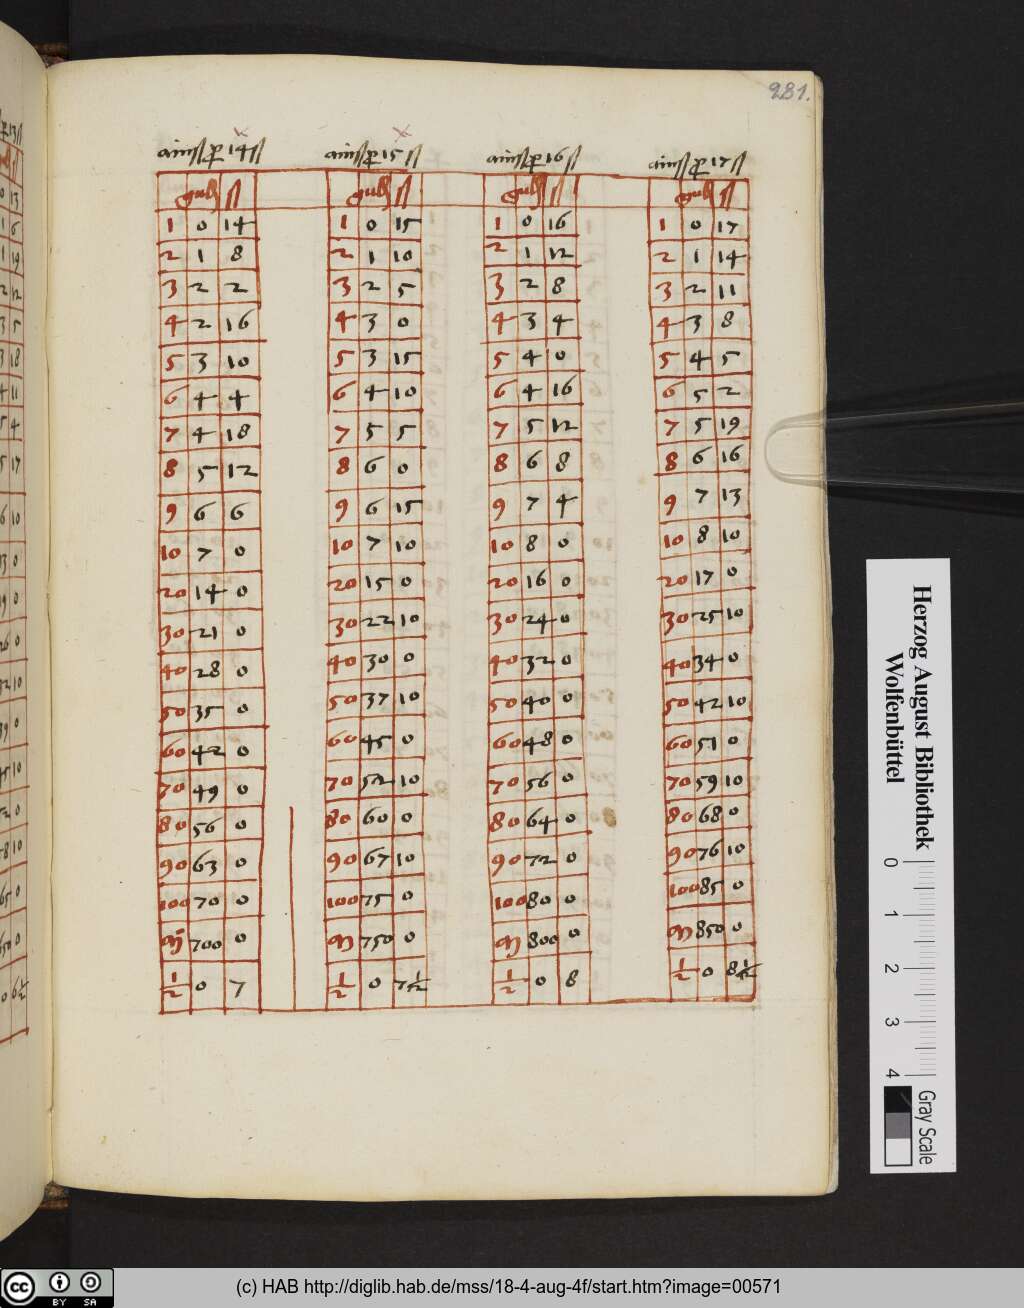 281.
ainß p 14 ß ainß p 15 ß ainß p 16 ß ainß p 17 ß
guld ß guld ß guld ß guld ß
1 0 14 1 0 15 1 0 16 1 0 17
2 1 8 2 1 10 2 1 12 2 1 14
3 2 2 3 2 5 3 2 8 3 2 11
4 2 16 4 3 0 4 3 4 4 3 8
5 3 10 5 3 15 5 4 0 5 4 5
6 4 4 6 4 10 6 4 16 6 5 2
7 4 18 7 5 5 7 5 12 7 5 19
8 5 12 8 6 0 8 6 8 8 6 16
9 6 6 9 6 15 9 7 4 9 7 13
10 7 0 10 7 10 10 8 0 10 8 10
20 14 0 20 15 0 20 16 0 20 17 0
30 21 0 30 22 10 30 24 0 30 25 10
40 28 0 40 30 0 40 32 0 40 34 0
50 35 0 50 37 10 50 40 0 50 42 10
60 42 0 60 45 0 60 48 0 60 51 0
70 49 0 70 52 10 70 56 0 70 59 10
80 56 0 80 60 0 80 64 0 80 68 0
90 63 0 90 67 10 90 72 0 90 76 10
100 70 0 100 75 0 100 80 0 100 85 0
M 700 0 M 750 0 M 800 0 M 850 0
1/2 0 7 1/2 0 7 1/2 1/2 0 8 1/2 0 8 1/2
Herzog August Bibliothek
Wolfenbüttel
0 1 2 3 4
Gray Scale
(c) HAB http://diglib.hab.de/mss/18-4-aug-4f/start.htm?image=00571
cc BY SA